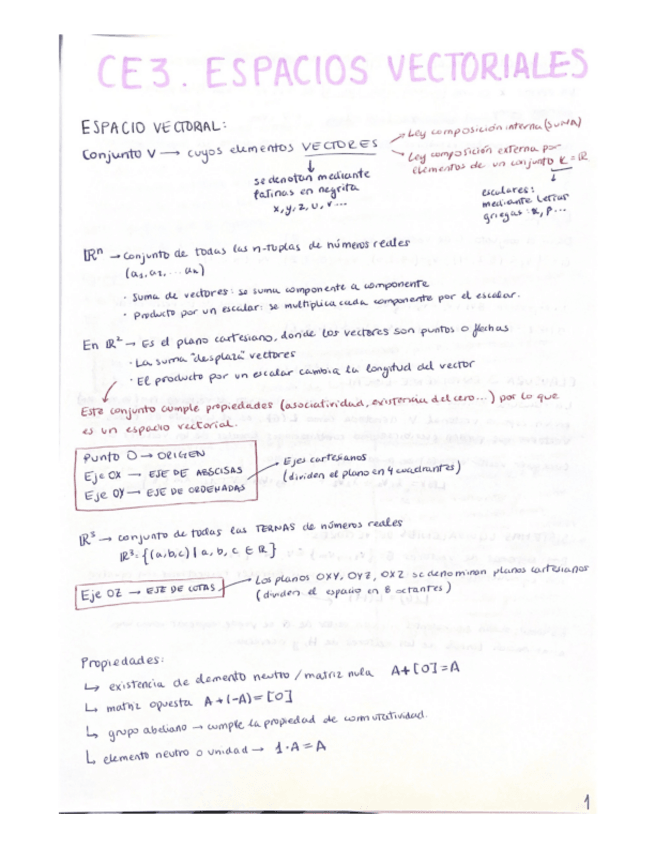 CE3. ESPACIOS VECTORIALES
ESPACIO VECTORIAL:
Conjunto V → cuyos elementos VECTORES
→ Ley composición interna (SUMA)
→ Ley composición externa por
elementos de un conjunto K = ℝ
se denotan mediante
latinas en negrita
x, y, z, u, v...
escalares:
mediante letras
griegas: α, β...
ℝⁿ → conjunto de todas las n-tuplas de números reales
(a₁, a₂, ... aₙ)
· Suma de vectores: se suma componente a componente
· Producto por un escalar: se multiplica cada componente por el escalar.
En ℝ² → Es el plano cartesiano, donde los vectores son puntos o flechas
· La suma "desplaza" vectores
· El producto por un escalar cambia la longitud del vector
Este conjunto cumple propiedades (asociatividad, existencia del cero...) por lo que
es un espacio vectorial.
Punto O → ORIGEN
Eje OX → EJE DE ABSCISAS
Eje OY → EJE DE ORDENADAS
Ejes cartesianos
(dividen el plano en 4 cuadrantes)
ℝ³ → conjunto de todas las TERNAS de números reales
ℝ³ = {(a,b,c) | a, b, c ∈ ℝ}
Eje OZ → EJE DE COTAS
Los planos OXY, OYZ, OXZ se denominan planos cartesianos
(dividen el espacio en 8 octantes)
Propiedades:
↳ existencia de elemento neutro / matriz nula A+[0]=A
↳ matriz opuesta A+(-A)=[0]
↳ grupo abeliano → cumple la propiedad de conmutatividad.
↳ elemento neutro o unidad → 1·A=A
1